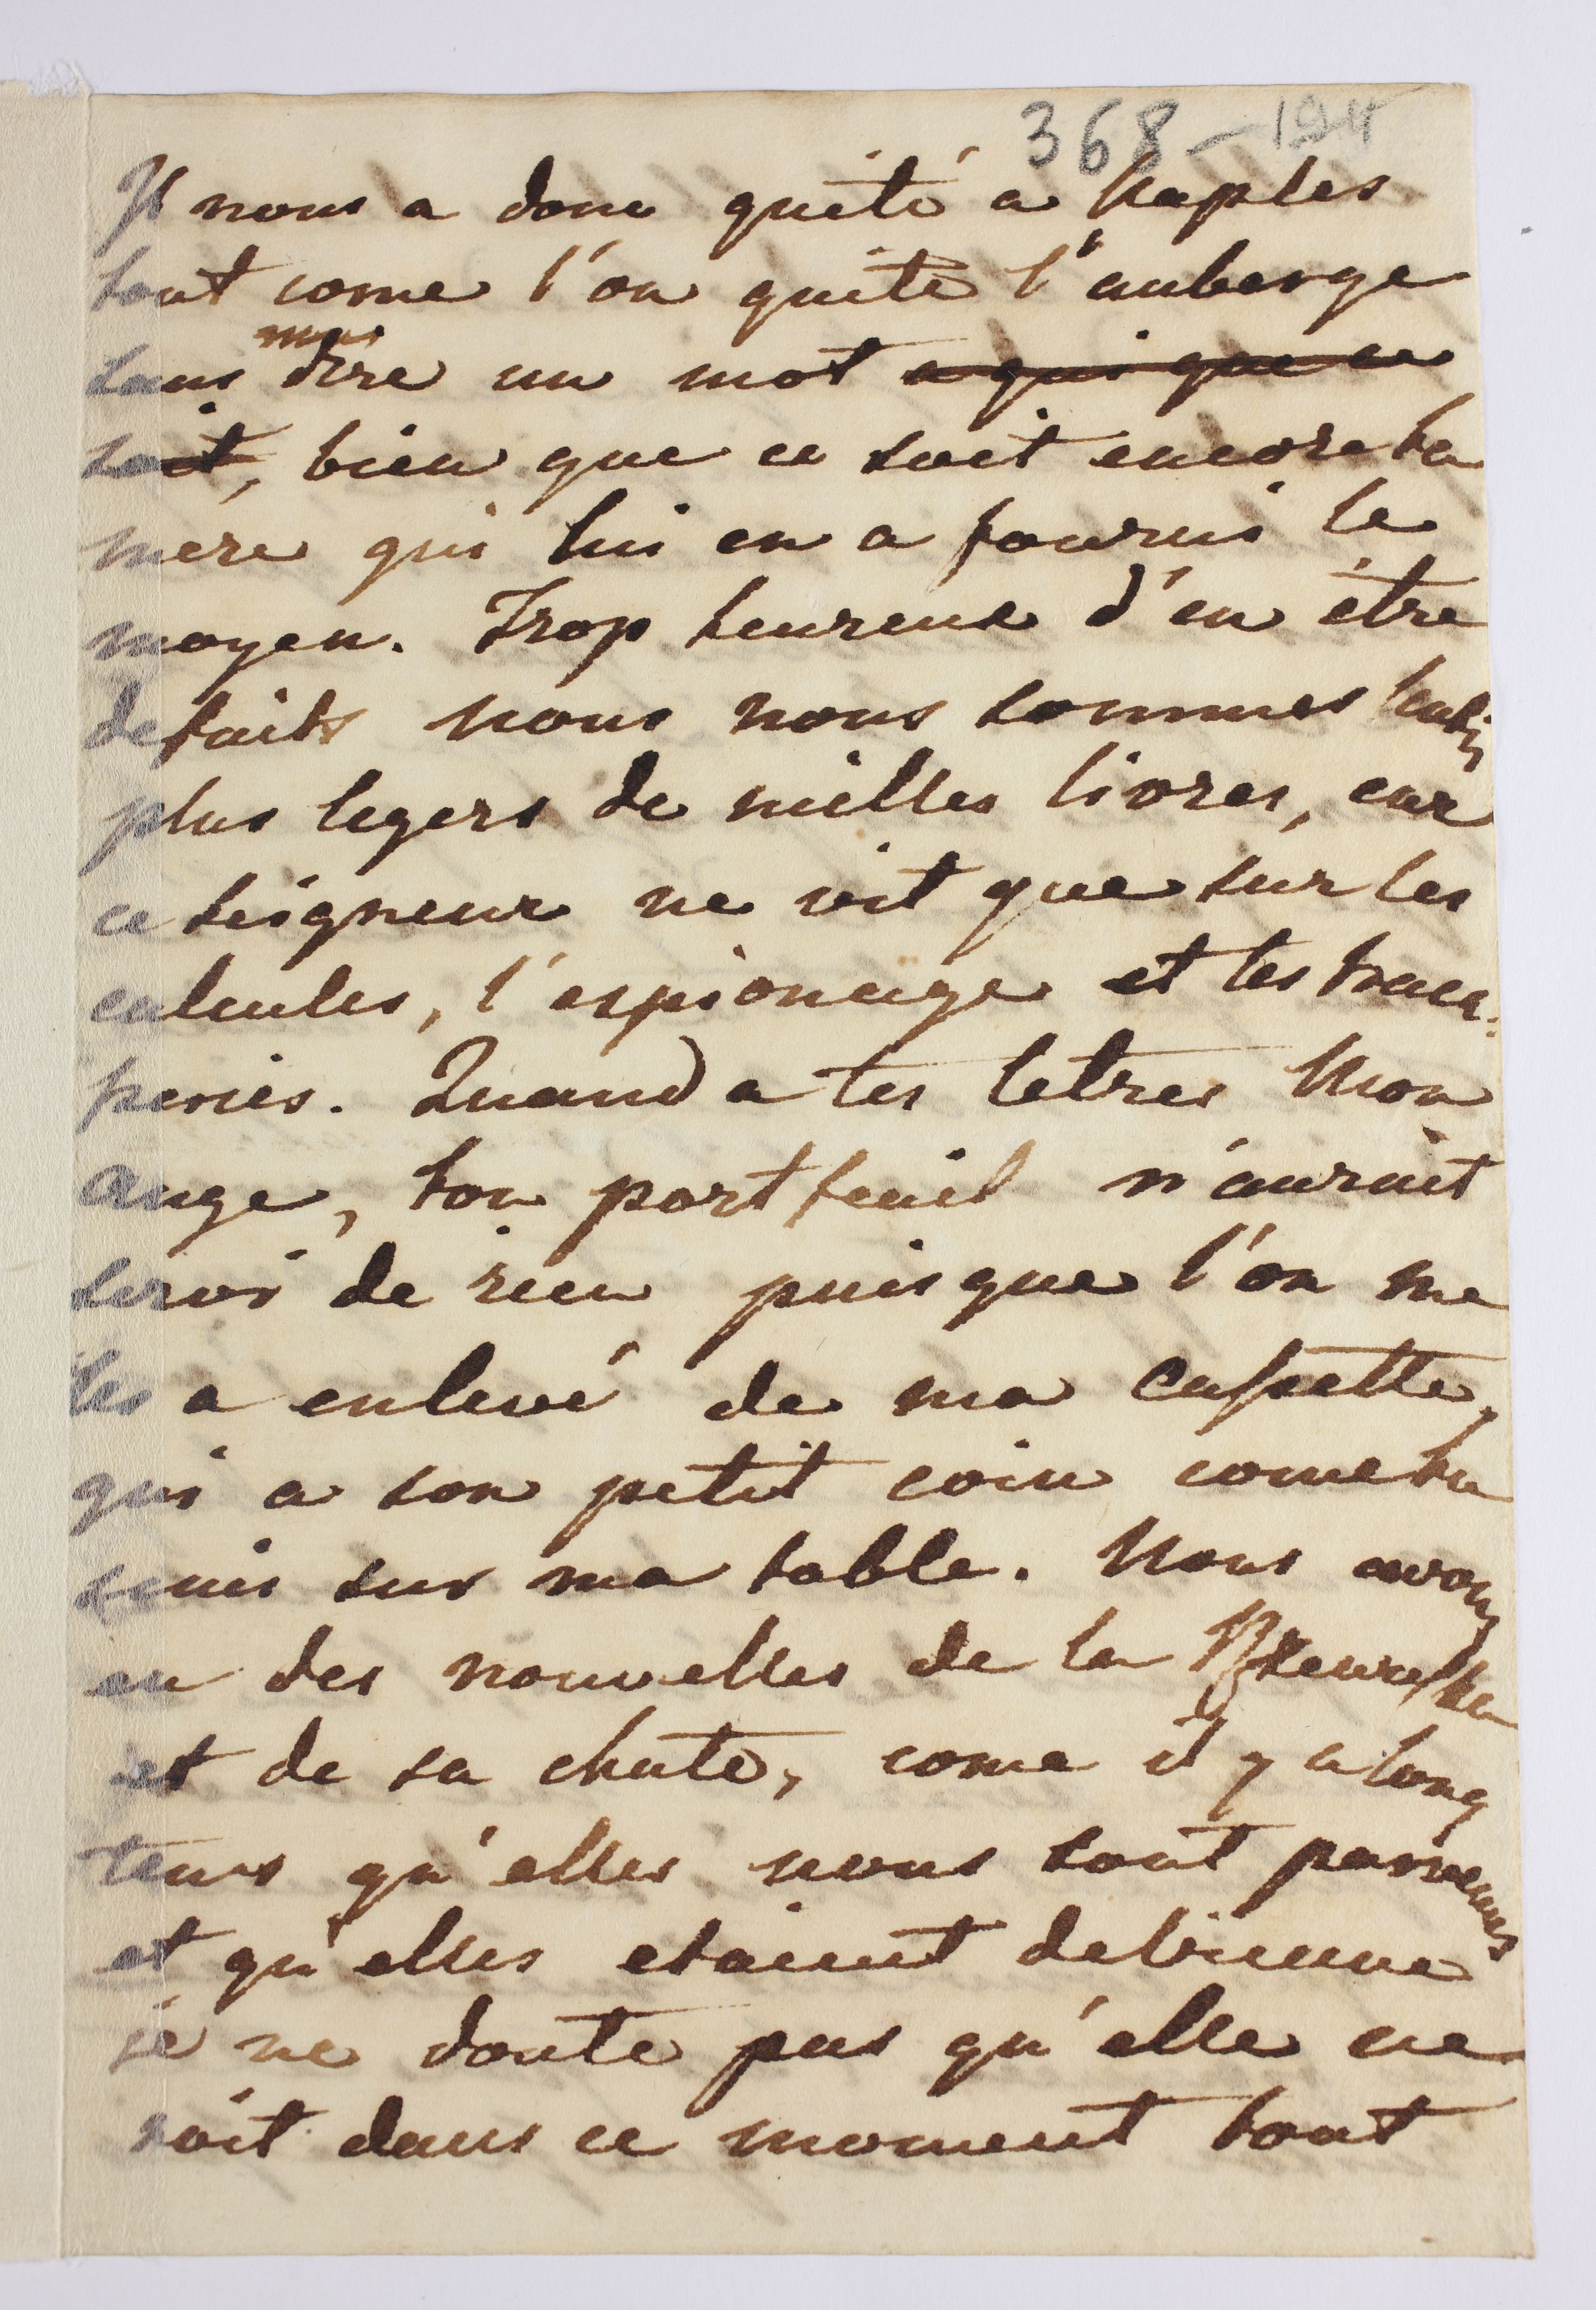 368 - 194
Il nous a donc quité a Naples
tout come l'on quite l'auberge
sans nous dire un mot a qui que ce
soit, bien que ce soit encore ta
mere qui lui en a fourni le
moyen. Trop heureux d'en étre
defaits nous nous sommes
plus legers de milles livres, car
ce seigneur ne vit que sur les
calcules, l'espionage et les traca-
peries. Quand a tes letres Mon
ange, ton portfeuil n'aurait
servi de rien puisque l'on me
les a enlevé de ma cassette,
qui a son petit coin come tu
sais sur ma table. Nous avons
eu des nouvelles de la
et de sa chute, come il y a long
tems qu'elles nous sont parvenues
et qu'elles etaient de Vienne
je ne doute pas qu'elle ne
soit dans ce moment tout